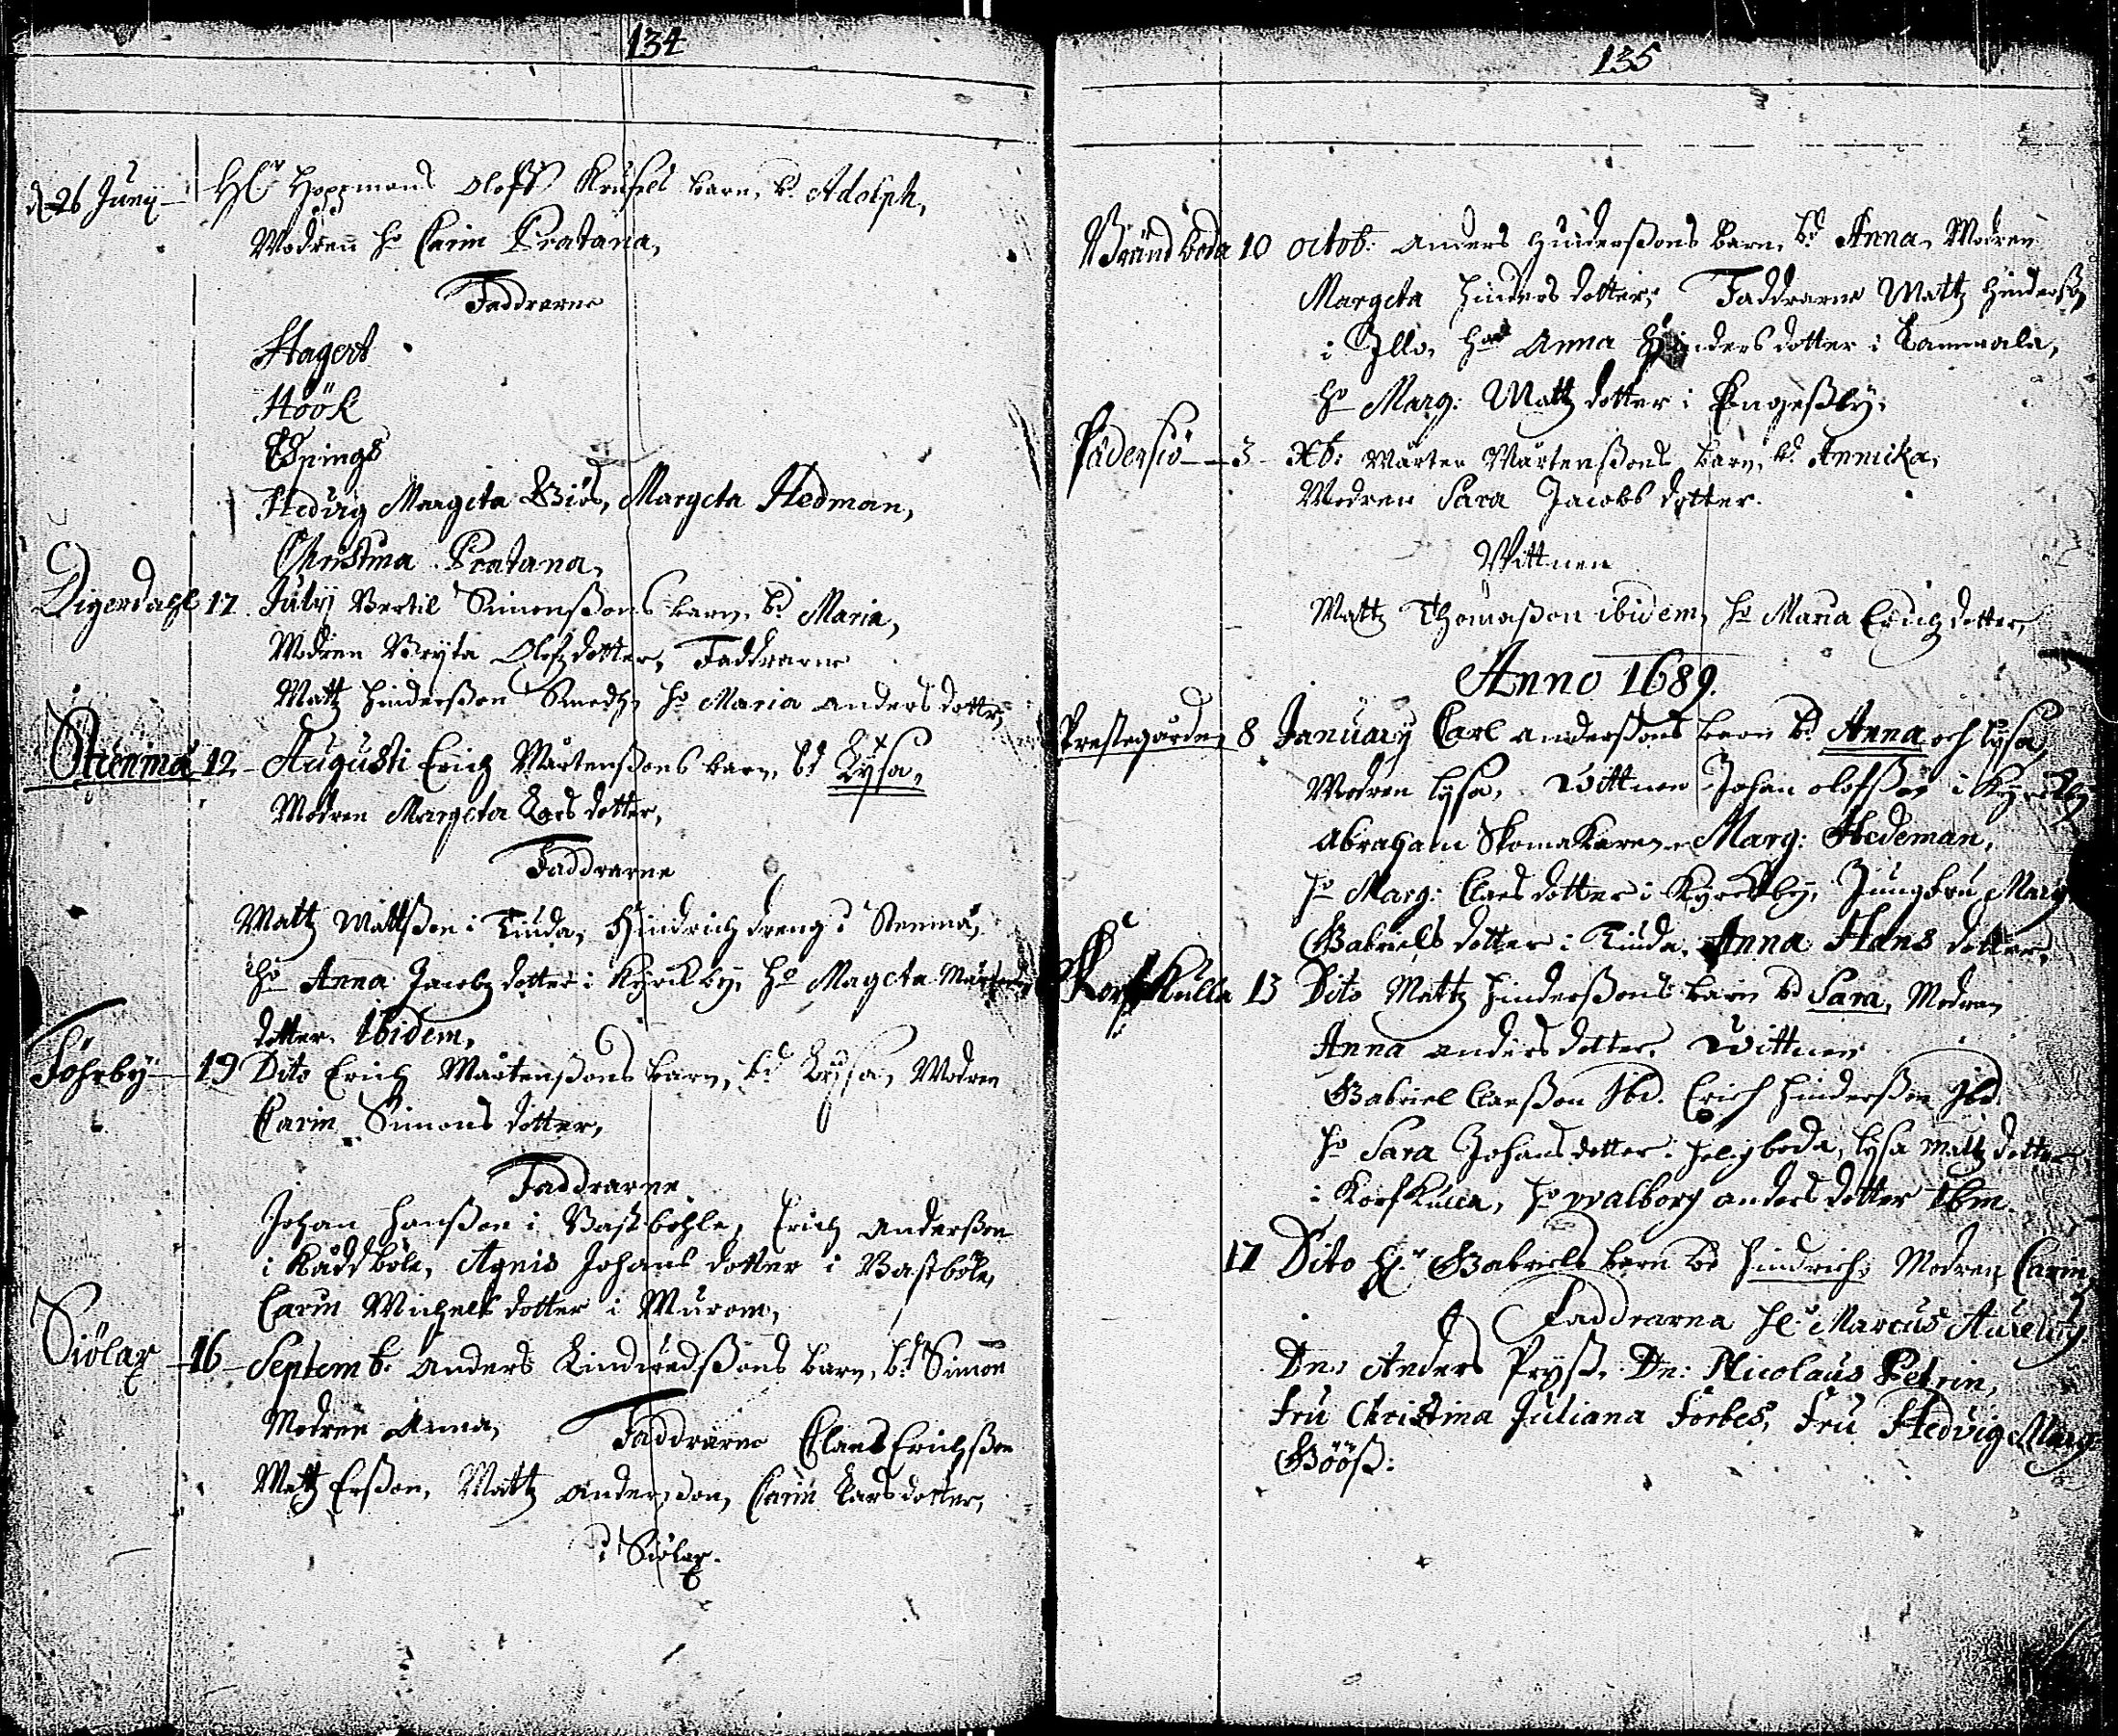 134
d. 26 Junij H:r Hoppmans Oloff Krusels barn, b:d Adolph,
Modren h:o Carin Pratana,
Faddrarne
Hagert
Höök
Hedvig Margeta Margeta Hedman,
Christina Pratana,
Digerdahl 17. Julij Bertil Simonßons barn, b:d Maria,
Modren Bryta Olofzdotter, Faddrarne
Matz Hinderßon Smedh, h:o Maria Andersdotter,
Stenmå 12 Augusti Erich Mårtenßons barn, b:d Lysa,
Modren Margeta Larsdotter,
Faddrarne
Matz Mattßon i Kiuda, Hindrich dreng i Stenmå,
h:o Anna Jacobzdotter i Kyrckby, h:o Mageta
dotter. Ibidem,
Föhrby 19 Dito Erich Mårtenßons barn, b:d Lysa, Modren
Carin Simonsdotter,
Faddrarne
Johan Hanßon i Bastbohle, Erich Anderßon
i Råddböle, Agnis Johansdotter i Bastböle,
Carin Michelsdotter i Murom,
Siölax 16 Septemb: Anders Lindvedßons barn, b:d Simon
Modren Anna, Faddrarne Claes Erichßon
Matz Erßon, Mattz Anderßon, Carin Larsdotter,
i Siölax.
135
Brändboda 10 octob: Anders Hinderßons barn, b:d Anna, Modren
Margeta Hindersdotter, Faddrarne Mattz Hinderßon
i Illo, h:o Anna Hindersdotter i Kammala,
h:o Marg: Mattzdotter i Engeßby,
Padersiö 3 Xb: Mårten Mårtenßons barn, b:d Annicka,
Modren Sara Jacobsdotter.
Wittnen
Mattz Thomaßon ibidem, h:o Maria Erichzdotter,
Anno 1689.
Prestegården 8 January Carl Anderßons barn b:d Anna och Lysa,
Modren Lysa, Wittnen Johan Olofßon i Kyrckby
Abraham Skomakaren, Marg: Hedeman,
h:o Marg: Claesdotter i Kyrckby, Jungfru Marg
Gabrielsdotter i Kiuda, Anna Hansdotter,
Korfkulla 13 Dito Mattz Hinderßons barn b:d Sara, Modren
Anna Andersdotter, Wittnen
Gabriel Claeßon Ibd. Erich Hinderßon Ibd.
h:o Sara Johansdotter i Helgboda, Lysa Mattzdotter
i Korfkulla, h:o Walborg Andersdotter Ibm.
17 Dito H:r Gabriels barn b:d Hindrich, Modren Carin,
Faddrarna H:r Marcus Aurelius.
Dn: Anders Pryß. Dn: Nicolaus Petrin,
Fru Christina Juliana Forbes, Fru Hedvig Marg:
Gööß: